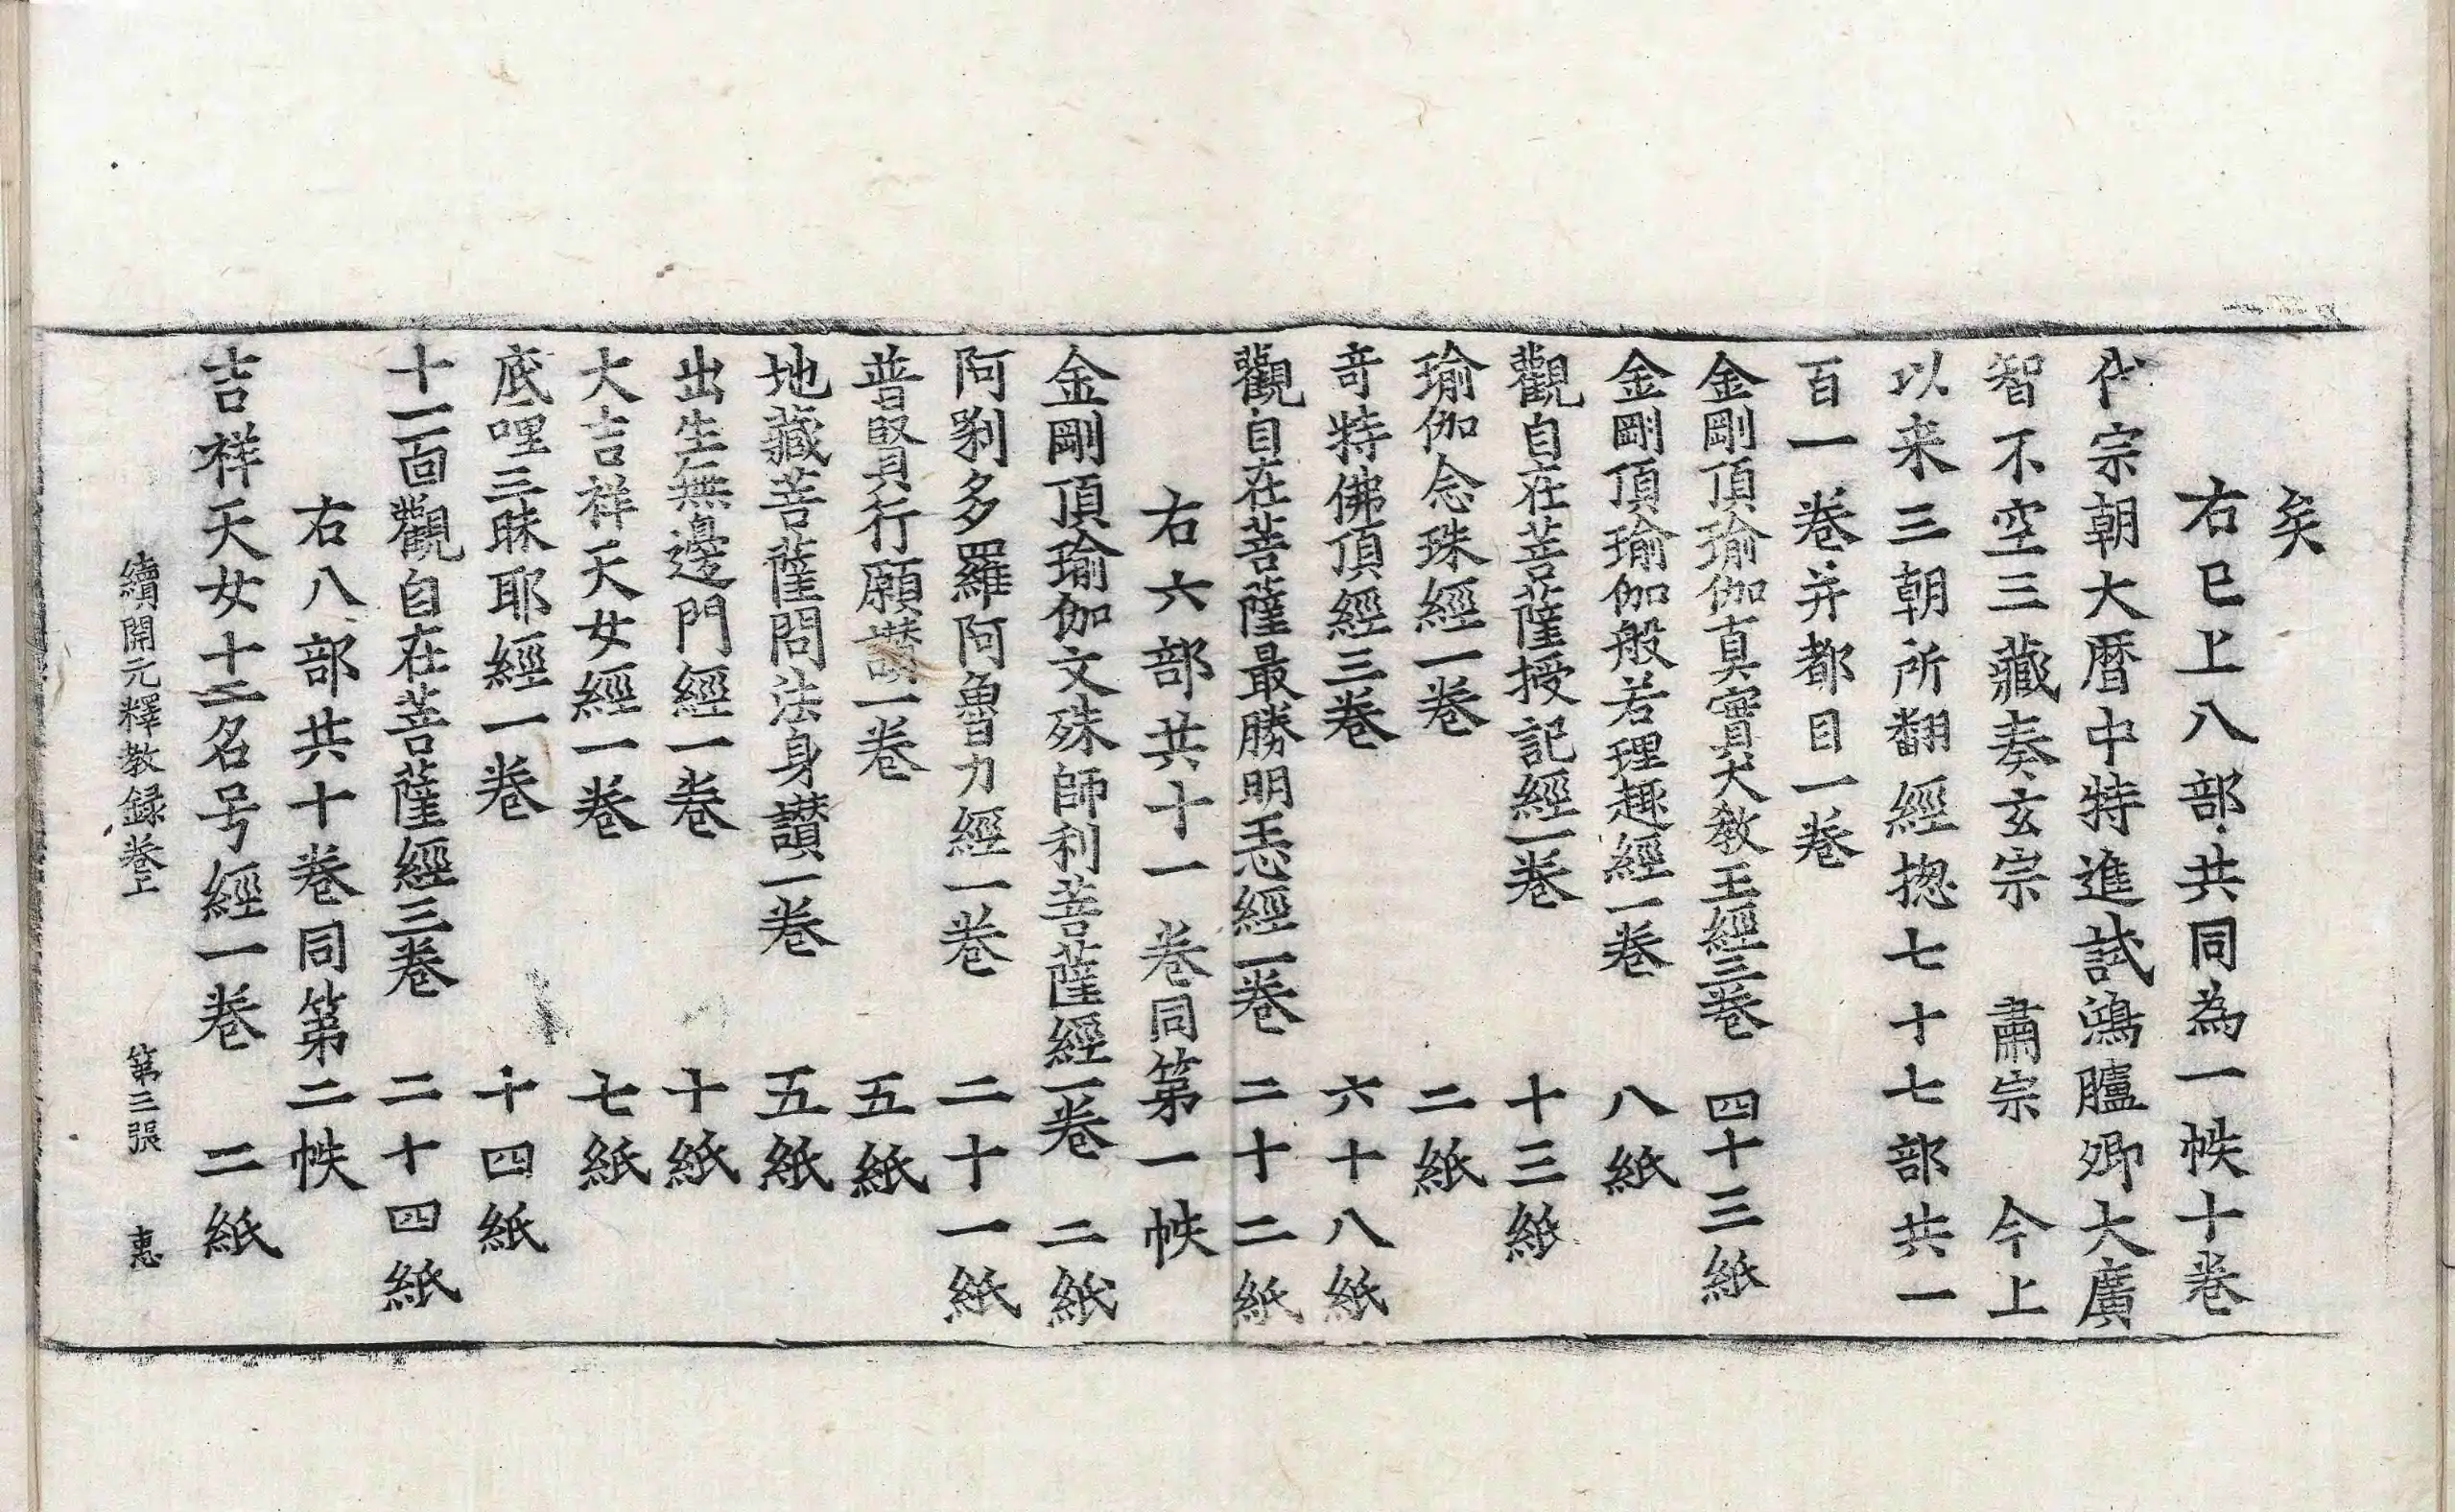 矣
右已上八部共同為一帙十卷
代宗朝大曆中特進試鴻臚卿大廣
智不空三藏奏玄宗　肅宗　今上
以来三朝所翻經揔七十七部共一
百一卷并都目一卷
金剛頂瑜伽真實大教王經三卷　四十三紙
金剛頂瑜伽般若理趣經一卷　八紙
觀自在菩薩授記經一卷　十三紙
瑜伽念珠經一卷　二紙
竒特佛頂經三卷　六十八紙
觀自在菩薩最勝明王心經一卷　二十二紙
右六部共十一卷同第一帙
金剛頂瑜伽文殊師利菩薩經一卷　二紙
阿唎多羅阿魯力經一卷　二十一紙
普賢行願讚一卷　五紙
地藏菩薩問法身讃一卷　五紙
出生無邊門經一卷　十紙
大吉祥天女經一卷　七紙
底哩三昧耶經一卷　十四紙
十一面觀自在菩薩經三卷　二十四紙
右八部共十卷同第二帙
吉祥天女十二名号經一卷　二紙
續開元釋教録卷上　第二張　惠